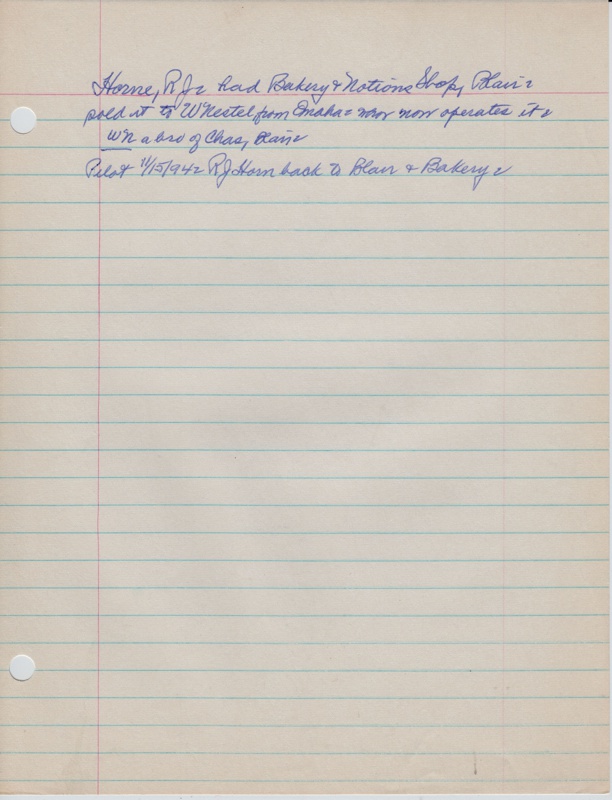 Horne, RJ = had Bakery & Notions Shop, Blair =
sold it to W Nestel from Omaha = now operates it =
WN a bro of Chas, Blair =
Pilot 11/15/94 = RJ Horn back to Blair & Bakery =